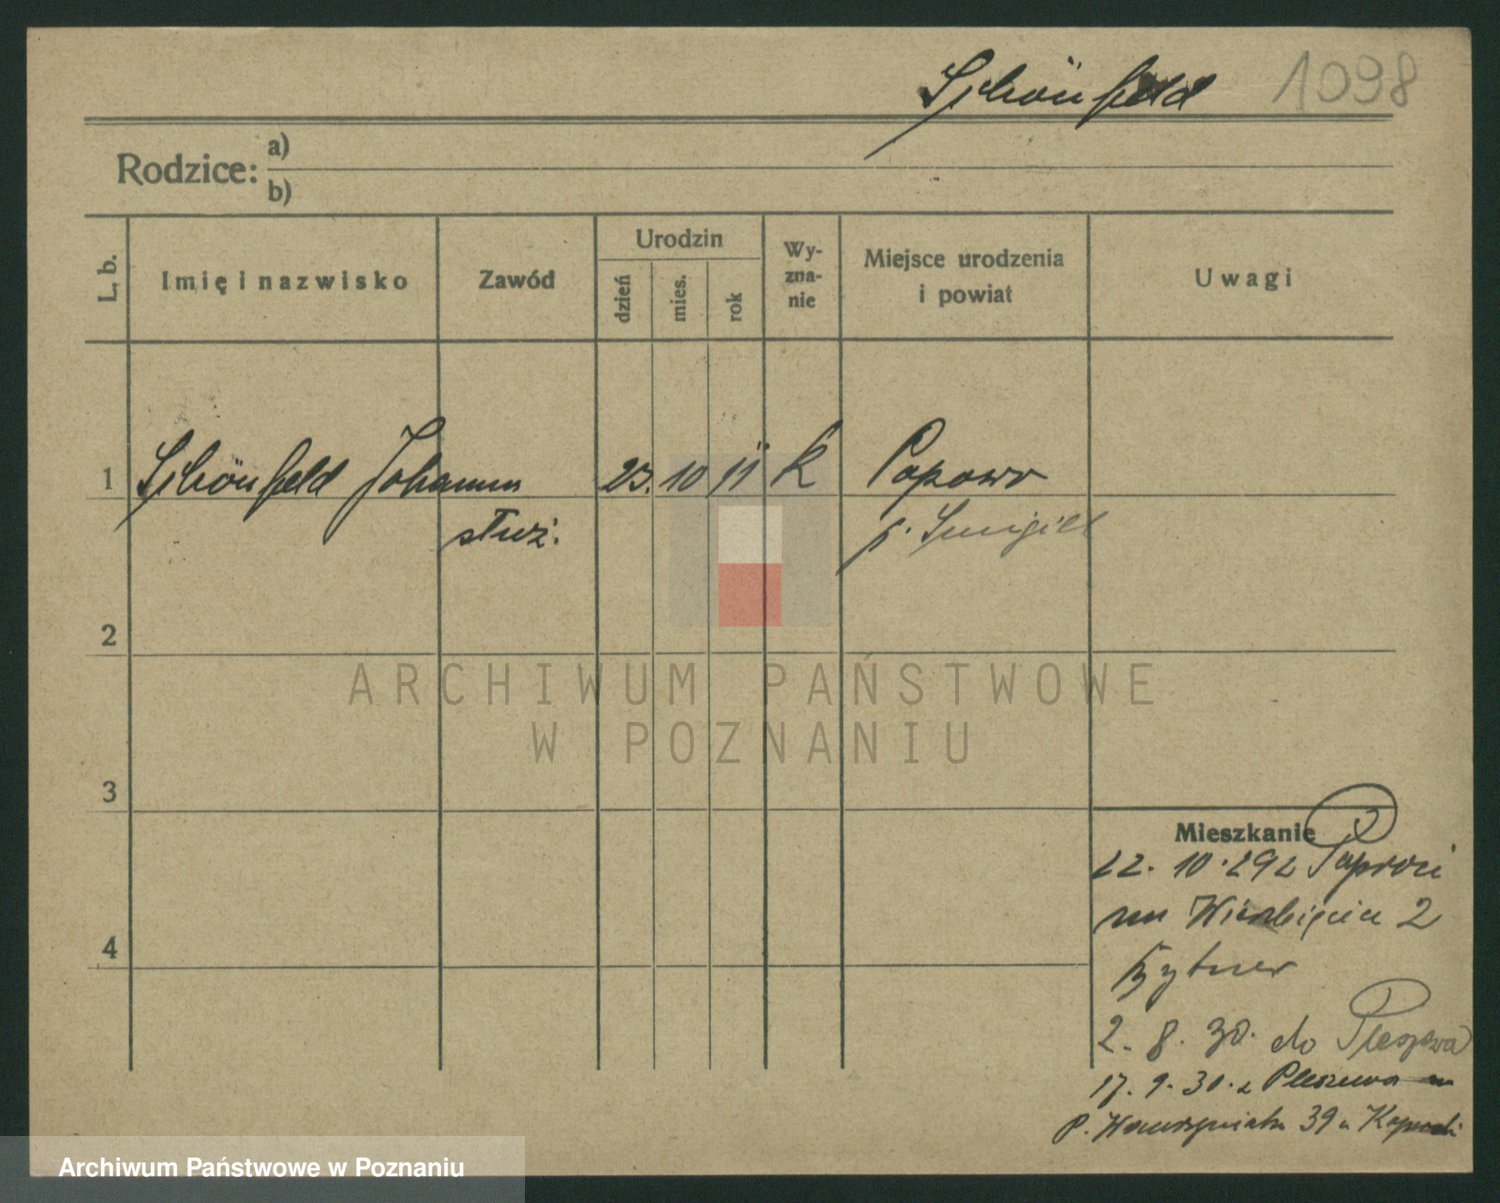 Schönfeld 1098
Rodzice: a)
b)
L. b.
Imię i nazwisko
Zawód
Urodzin
dzień mies. rok
Wy-
zna-
nie
Miejsce urodzenia
i powiat
Uwagi
1 Schönfeld Johann 23. 10 11 K Popowo
służ. p. Śmigiel
2
3
4
Mieszkanie
22. 10. 29 z
na Wierzbięcice 2
2. 8. 30. do Pleszewa
17. 9. 30. z Pleszewa na
P. Wawrzyniaka 39 u
ARCHIWUM PAŃSTWOWE
W POZNANIU
Archiwum Państwowe w Poznaniu